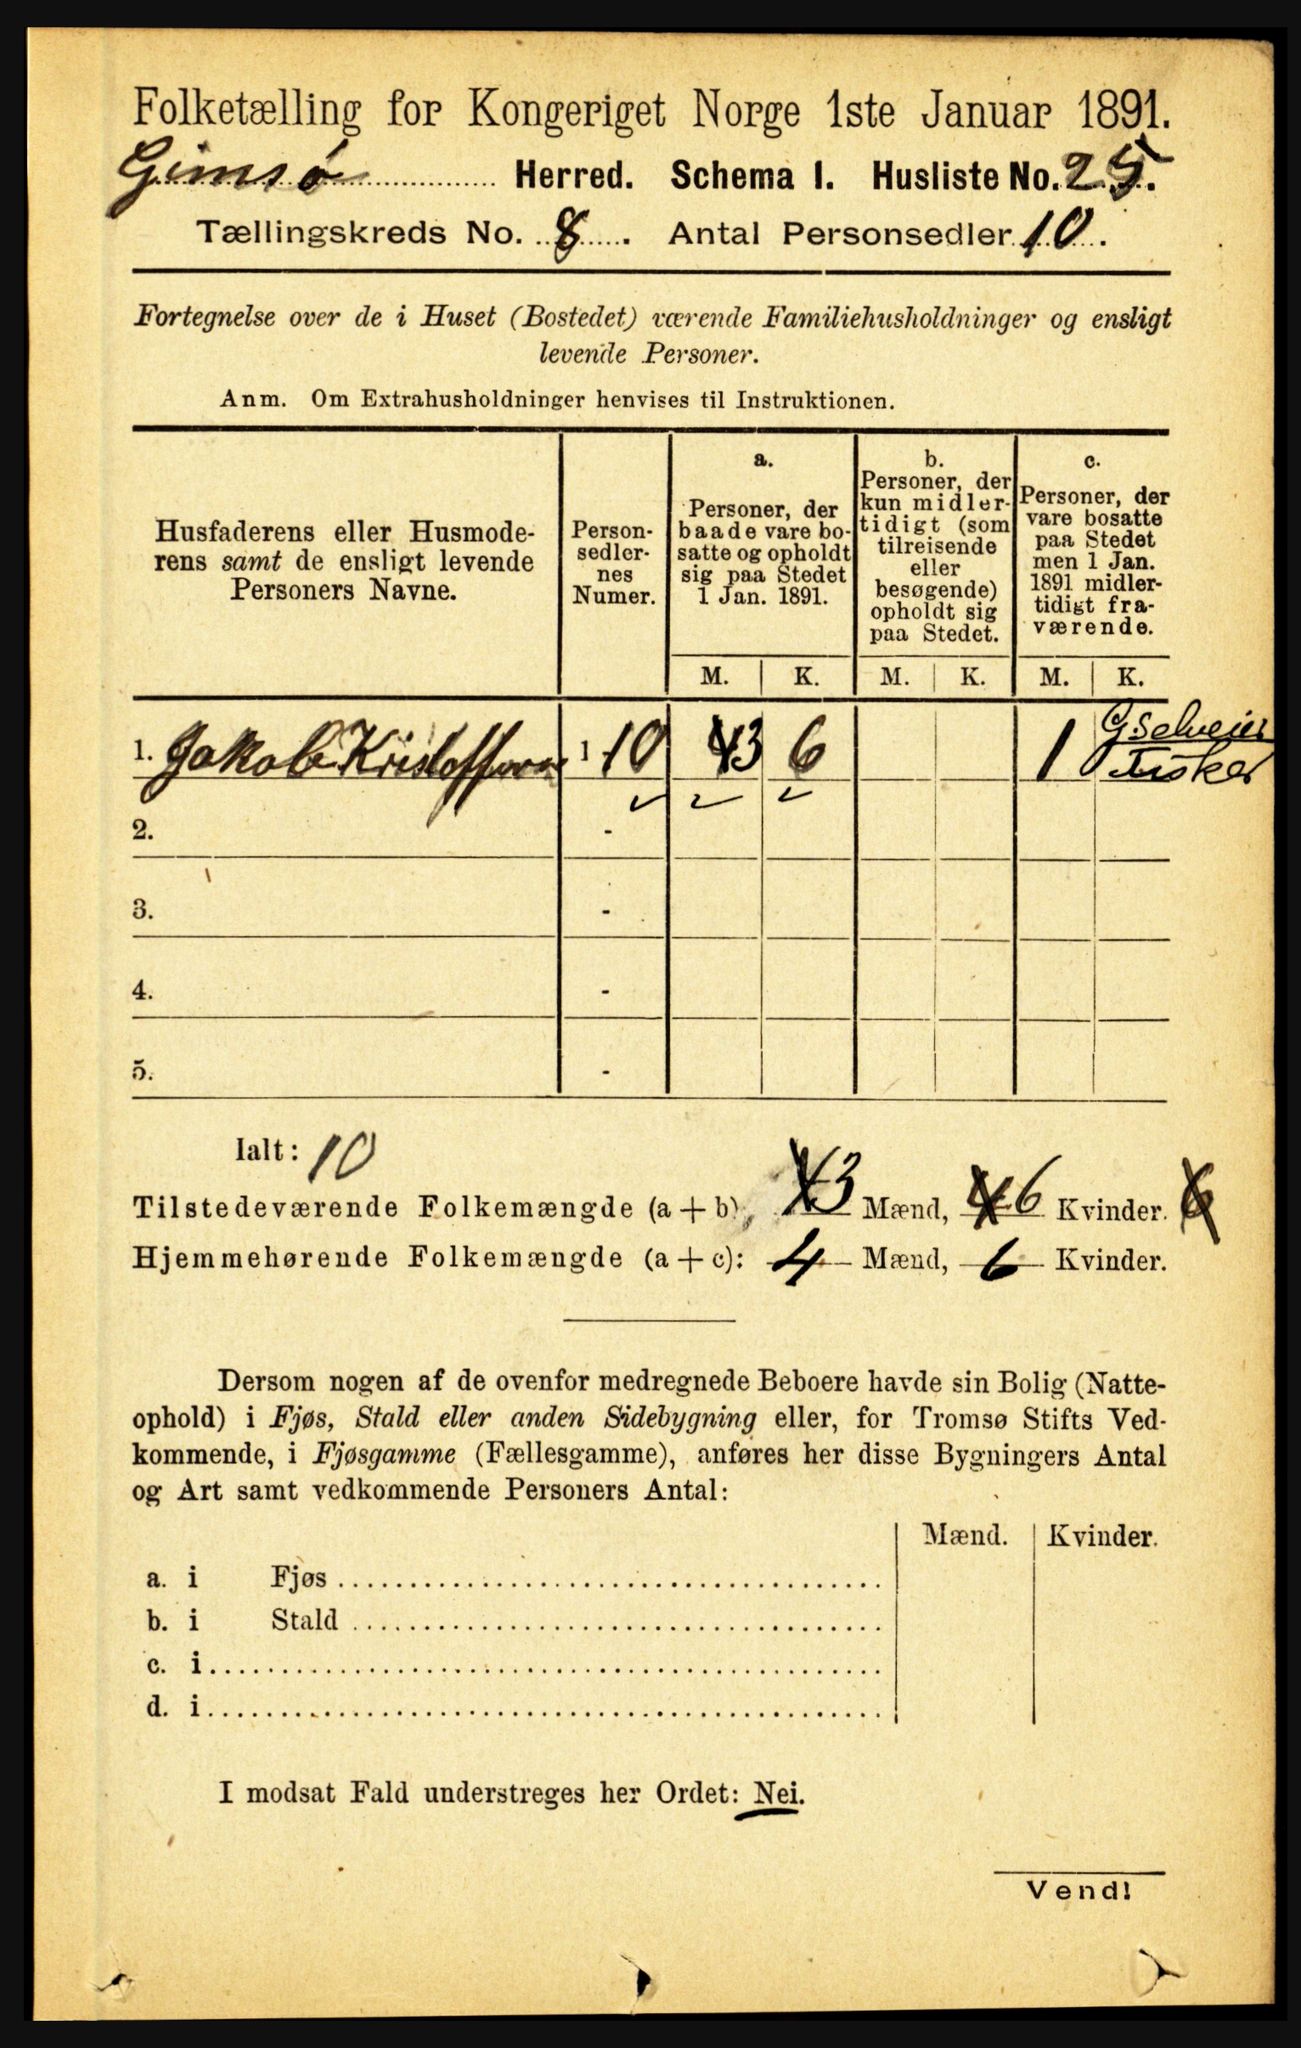 Folketælling for Kongeriget Norge 1ste Januar 1891.
Gimsø Herred. Schema 1. Husliste No. 25.
Tællingskreds No. 8. Antal Personsedler 10.
Fortegnelse over de i Huset (Bostedet) værende Familiehusholdninger og ensligt
levende Personer.
Anm. Om Extrahusholdninger henvises til Instruktionen.
Husfaderens eller Husmode-
rens samt de ensligt levende
Personers Navne.
Person-
sedler-
nes
Numer.
a.
Personer, der
baade vare bo-
satte og opholdt
sig paa Stedet
1 Jan. 1891.
b.
Personer, der
kun midler-
tidigt (som
tilreisende
eller
besøgende)
opholdt sig
paa Stedet.
c.
Personer, der
vare bosatte
paa Stedet
men 1 Jan.
1891 midler-
tidigt fra-
værende.
M. K. M. K. M. K.
1. Jakob Kristoffersen 1-10 43 6 1 G. Selveier
Fisker
2. -
3. -
4. -
5. -
Ialt: 10
Tilstedeværende Folkemængde (a + b), 43 Mænd, 4 6 Kvinder. 6
Hjemmehørende Folkemængde (a + c): 4 Mænd, 6 Kvinder.
Dersom nogen af de ovenfor medregnede Beboere havde sin Bolig (Natte-
ophold) i Fjøs, Stald eller anden Sidebygning eller, for Tromsø Stifts Ved-
kommende, i Fjøsgamme (Fællesgamme), anføres her disse Bygningers Antal
og Art samt vedkommende Personers Antal:
Mænd. Kvinder.
a. i Fjøs
b. i Stald
c. i
d. i
I modsat Fald understreges her Ordet: Nei.
Vend!